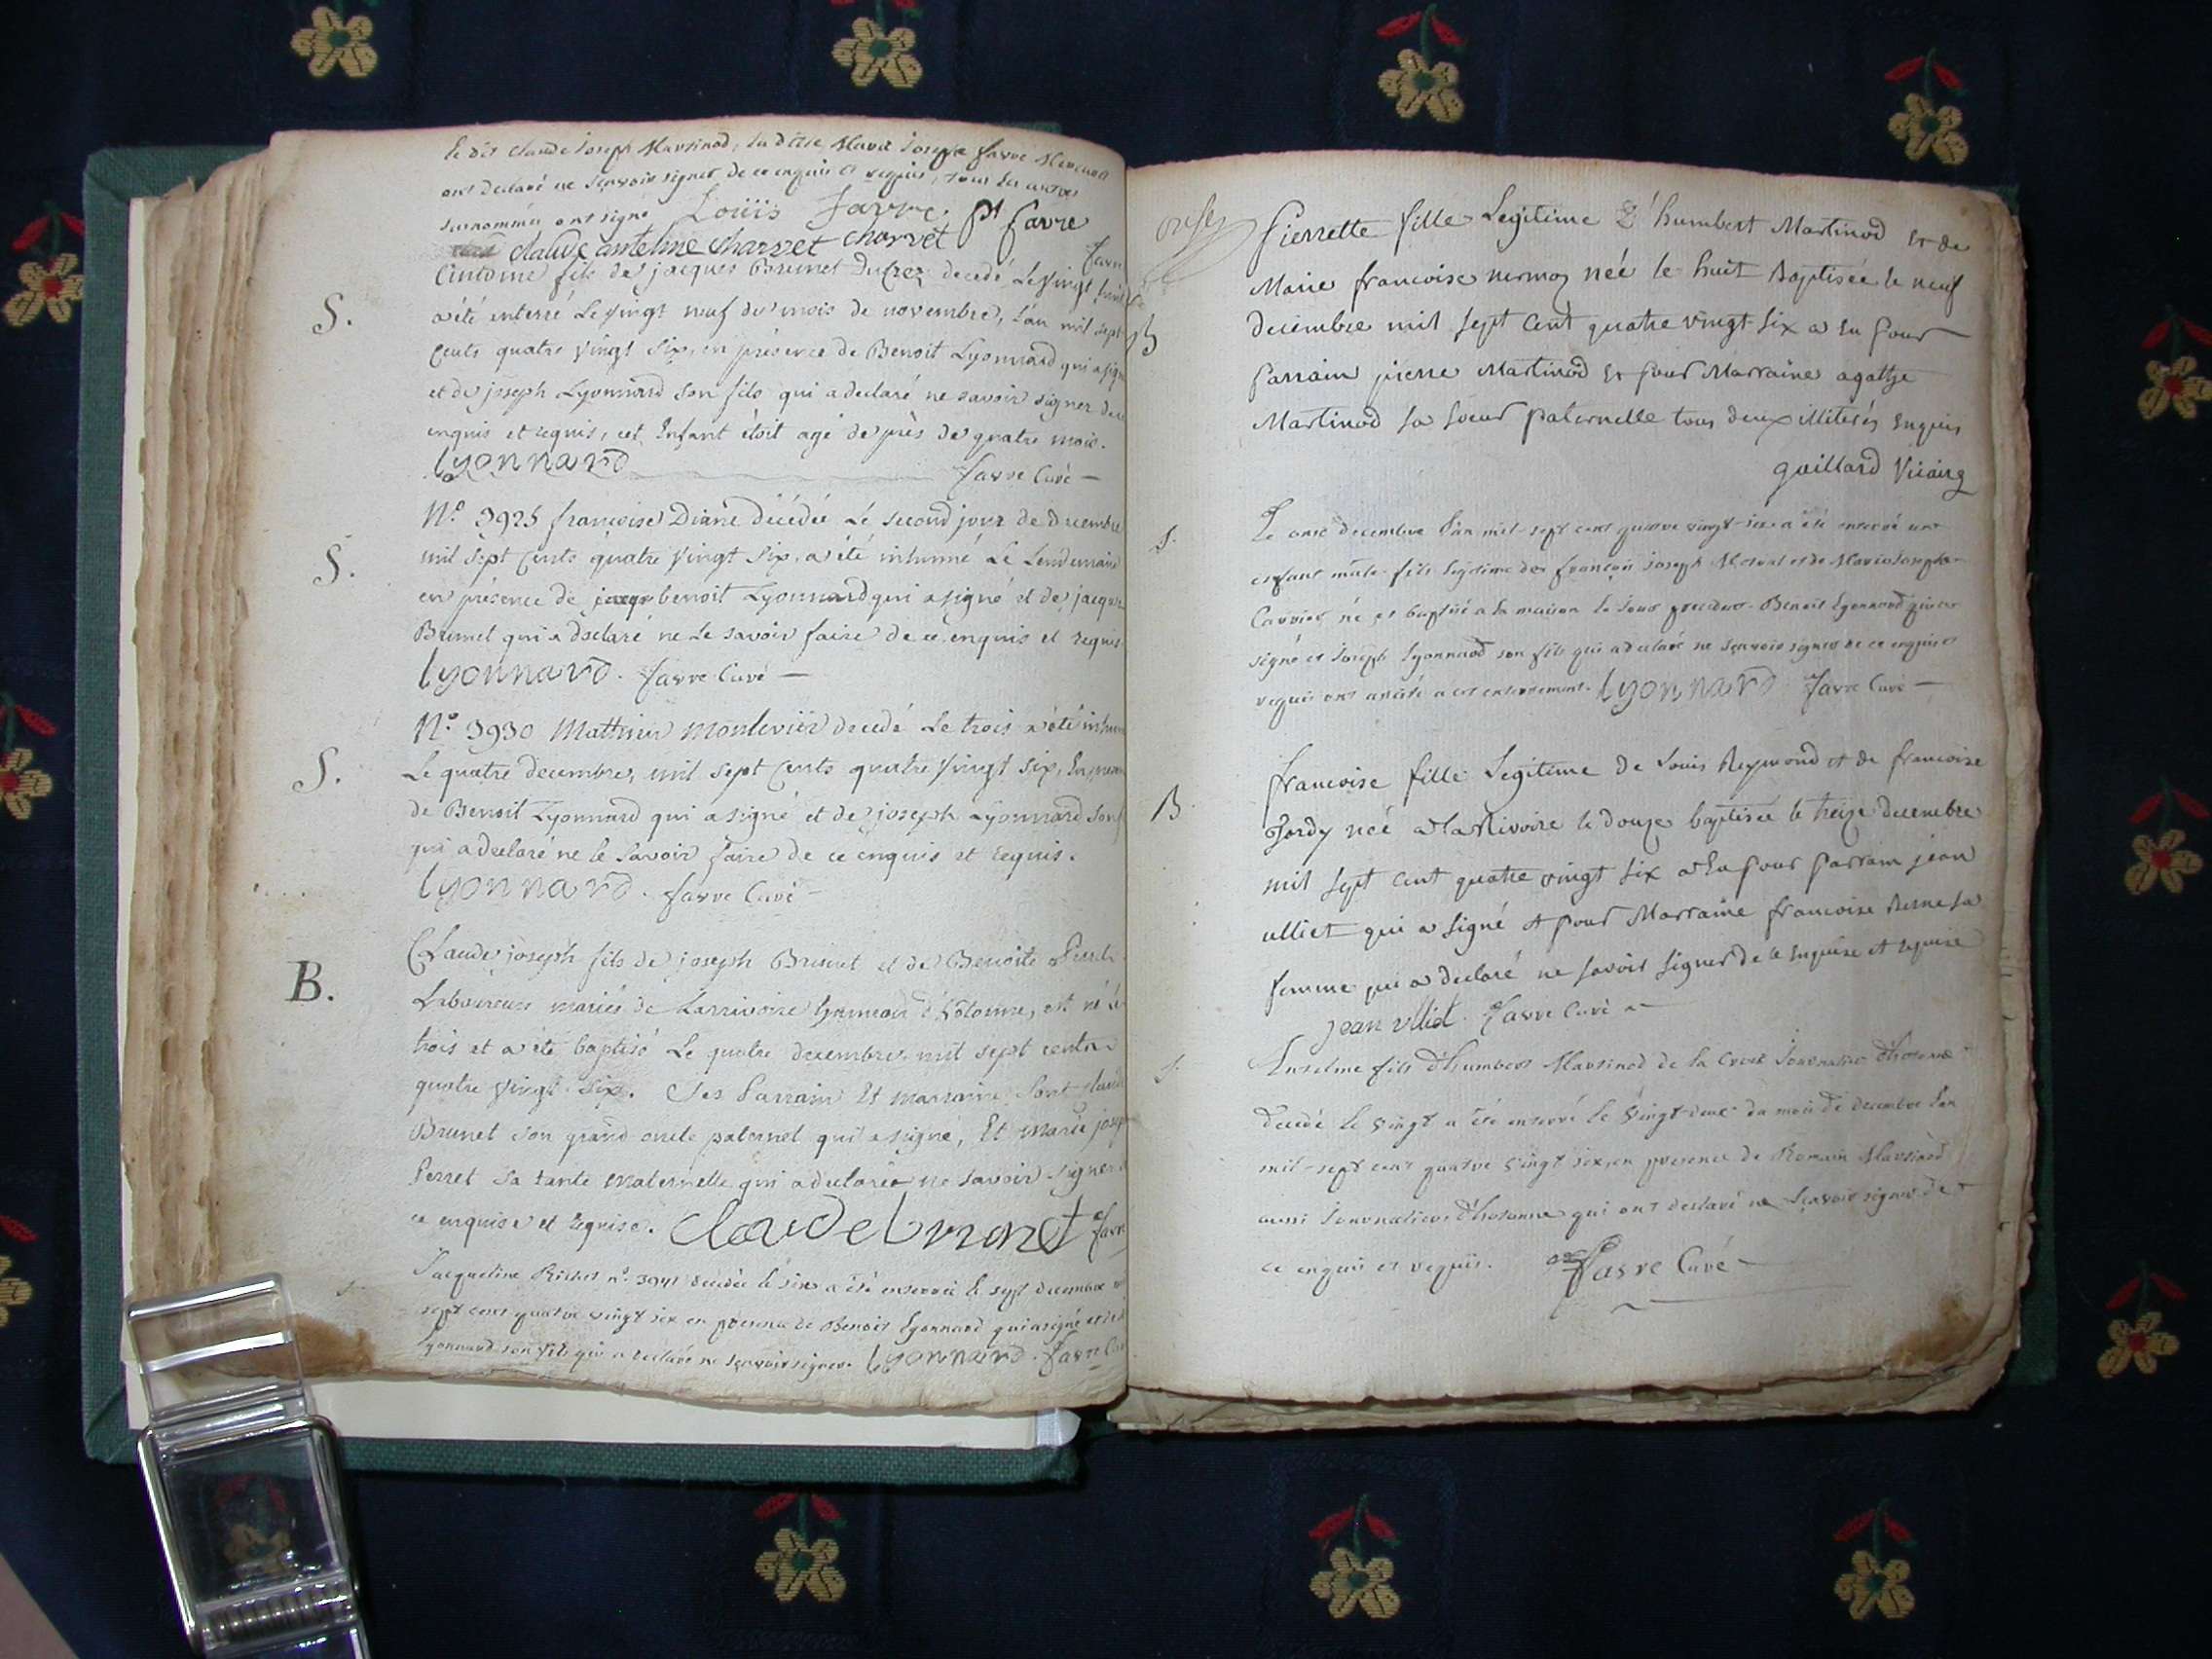 le dit Claude Joseph Martinod, la ditte Marie Josephe favre
ont declaré ne sçavoir signer de ce enquis et requis, tous les autres
surnommés ont signé Loüis favre. pt favre
claude anteline charvet charvet favre
S.
Antoine fils de jacques Brunet Ducrez decedé Le vingt huit
a été enterré Le vingt neuf du mois de novembre, l'an mil sept
cents quatre vingt six, en présence de Benoit Lyonnard qui a signé
et de joseph Lyonnard son fils qui a declaré ne savoir signer de ce
enquis et requis, cet Enfant étoit agé de près de quatre mois.
lyonnard favre Curé
S.
N.º 3925 francoise Diane décédée Lé second jour de decembre
mil sept cents quatre vingt six, a été inhumé Le Lendemain
en présence de benoit Lyonnard qui a signé et de jacques
Brunet qui a declaré ne Le savoir faire de ce enquis et requis.
lyonnard. favre Curé
S.
N.º 3930 Mathieu decedé Le trois a été
Le quatre decembre, mil sept cents quatre vingt six,
de Benoit Lyonnard qui a signé et de joseph Lyonnard son
qui a declaré ne le savoir faire de ce enquis et requis.
lyonnard. favre Curé
B.
Claude joseph fils de joseph Brunet et de Benoite
Laboureurs mariés de Larrivoire d'hotonne, est né le
trois et a été baptisé Le quatre decembre mil sept cents
quatre vingt six. Ses Parrain Et marraine sont
Brunet son grand oncle paternel qui a signé, Et marie
Perret sa tante maternelle qui a declarée ne savoir signer
ce enquise et requise. Claude brunet favre
S.
Jacqueline Richet n.º 3941 decedée le six a été enterrée le sept decembre
sept cent quatre vingt six en presence de Benoit Lyonnard qui a signé et de
Lyonnard son fils qui a declaré ne sçavoir signer. lyonnard. favre
B
Pierrette fille Legitime d'humbert Martinod et de
Marie francoise nermoz née le huit Baptisée le neuf
decembre mil sept cent quatre vingt six a eu pour
parrain pierre Martinod et pour Marraine agathe
Martinod sa soeur paternelle tous deux illiterés enquis
guillard Vicaire
S.
Le onze decembre l'an mil-sept cent quatre vingt-six a été enterré un
enfant mâle fils legitime de françois joseph et de Marie Josephe
Carrier né et baptisé a la maison le jour precedent. Benoit Lyonnard qui a
signé et Joseph Lyonnard son fils qui a declaré ne sçavoir signer de ce enquis et
requis ont assisté a cet enterrement. lyonnard favre Curé
B
francoise fille Legitime de Louis Reymond et de francoise
Jordy née a la Rivoire le douze baptisée le treize decembre
mil sept cent quatre vingt six a eu pour parrain jean
ulliet qui a signé et pour Marraine francoise sa
femme qui a declaré ne savoir signer de ce enquise et requise
jean ulliet. favre Curé
S.
Anselme fils d'humbert Martinod de la Croix Journalier d'hotonne
decedé le vingt a été enterré le vingt-deux du mois de decembre l'an
mil-sept cent quatre vingt six, en presence de Romain Martinod
aussi Journalier d'hotonne qui ont declaré ne sçavoir signer de
ce enquis et requis. favre Curé